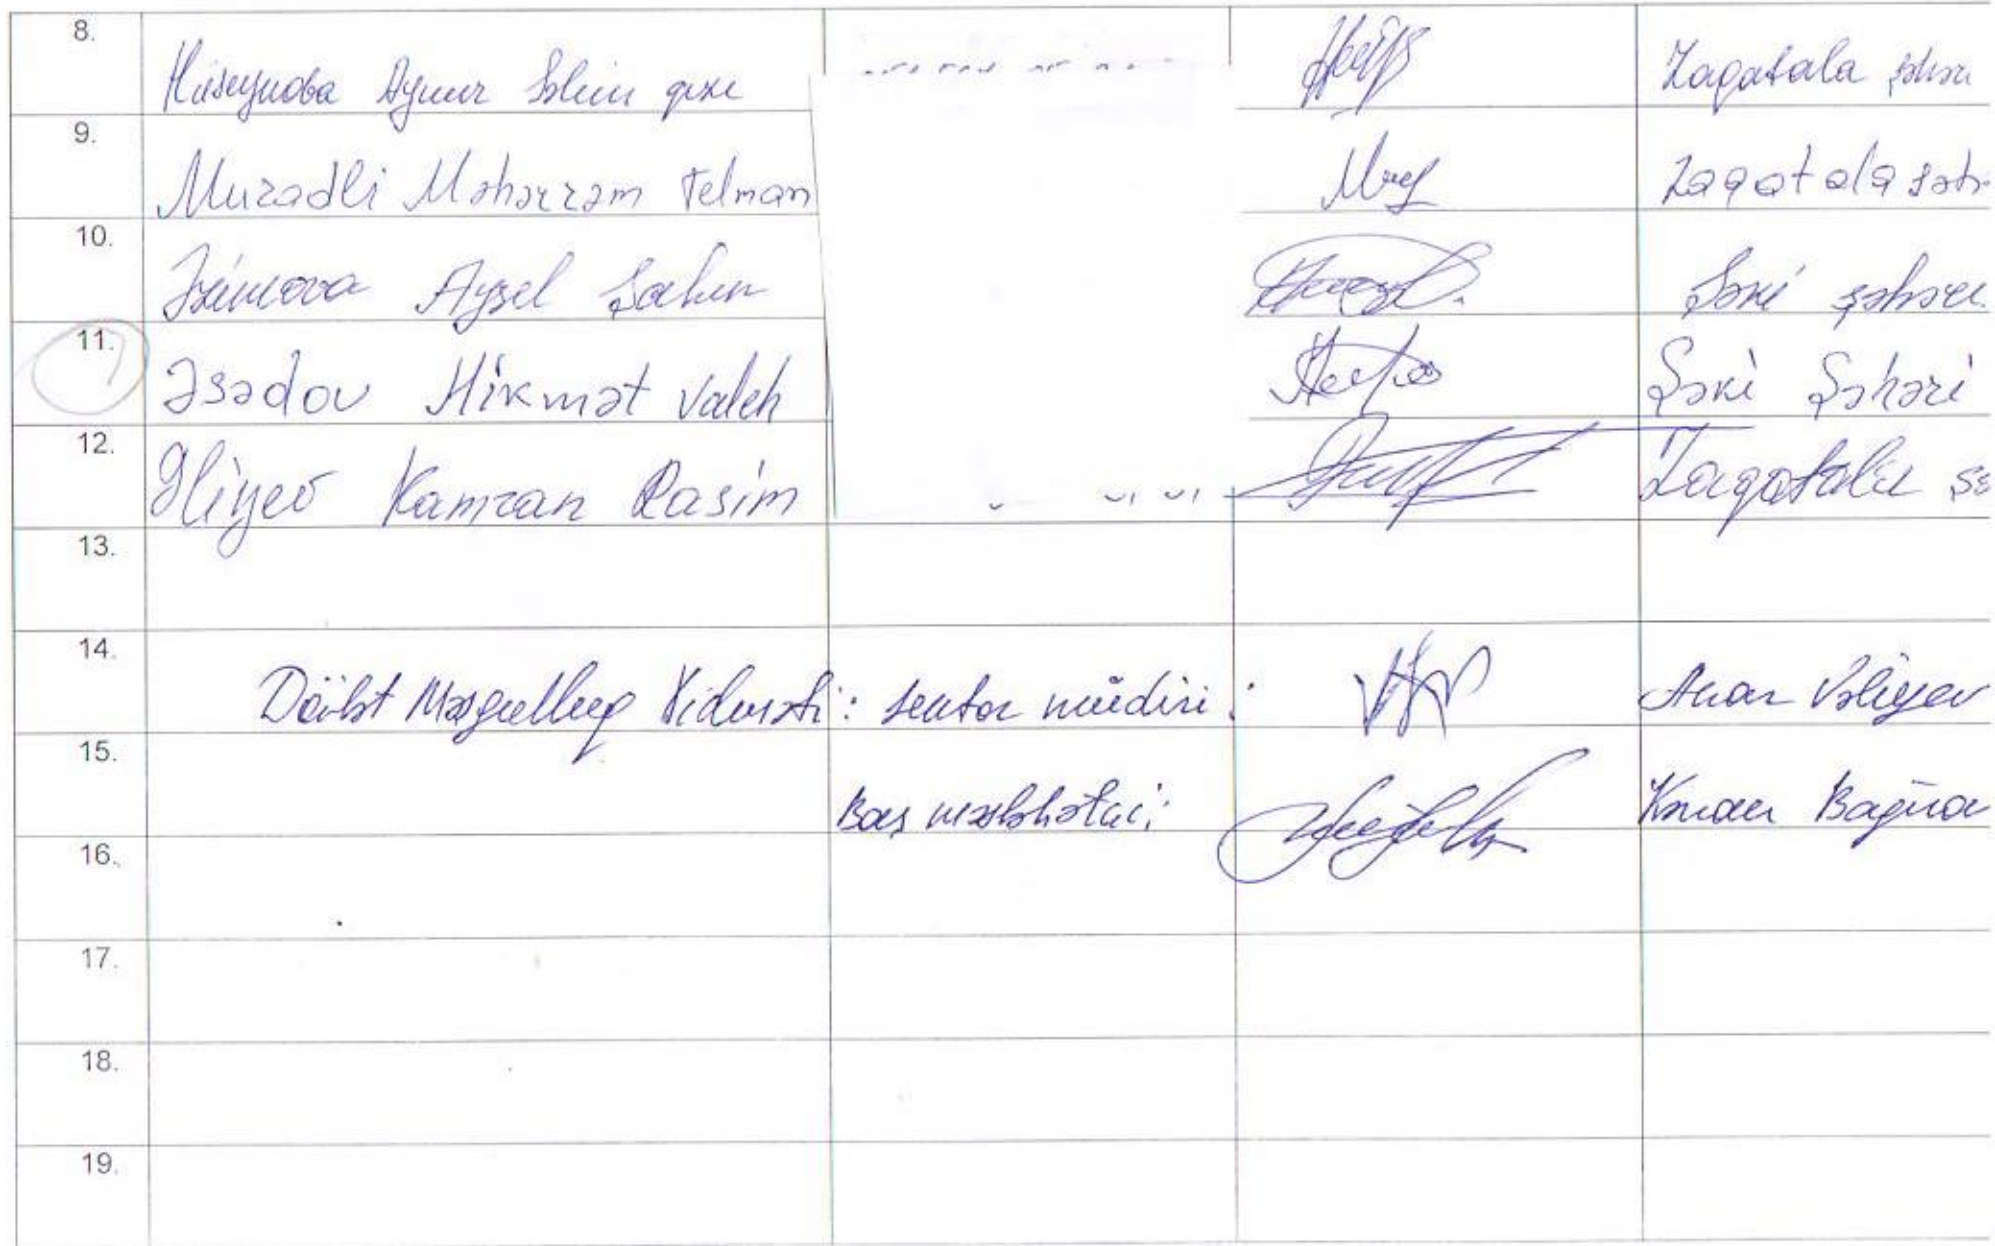 8. Hüseynova Aynur Səlim qızı Zaqatala şəhəri
9. Muradli Məhərrəm Telman Zaqatala şəh
10. Aysel Şahin Şəki şəhəri
11. Əsədov Hikmət Valeh Şəki Şəhəri
12. Əliyev Kamran Rasim Zaqatala şə
13.
14. Dövlət Məşğulluq Xidməti: sektor müdiri: Anar Vəliyev
15. Baş məsləhətçi: Kənan
16.
17.
18.
19.